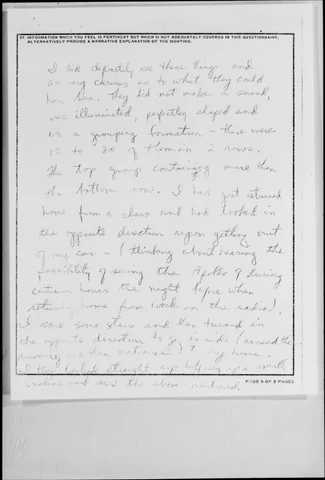 27. INFORMATION WHICH YOU FEEL IS PERTINENT BUT WHICH IS NOT ADEQUATELY COVERED IN THIS QUESTIONNAIRE,
ALTERNATIVELY PROVIDE A NARRATIVE EXPLANATION OF THE SIGHTING.
I did definitely see these things and
am very curious as to what they could
have been. They did not make a sound,
were illuminated, perfectly shaped and
in a grouping formation - there were
12 to 20 of them in 2 rows.
The top group containing more than
the bottom row. I had just returned
home from a class and had looked in
the opposite direction upon getting out
of my car - (thinking about hearing the
possibility of seeing the Apollo 9 during
certain hours the night before when
returning home from work on the radio).
I saw some stars and then turned in
the opposite direction to go inside (around the
and then entrance) my home.
I then looked straight up
and saw the above mentioned.
PAGE 8 OF 8 PAGES